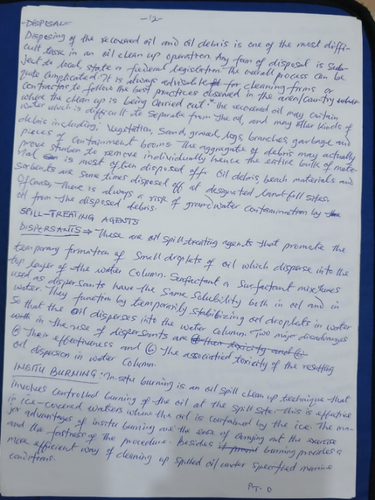 -12-
-DISPOSAL-
Disposing of the recovered oil and oil debris is one of the most diffi-
cult task in an oil clean up operation. Any form of disposal is sub-
ject to local, state or federal legislation. The overall process can be
quite complicated. It is always advisable for cleaning firms or
contractor to follow the best practices observed in the area/country where
where the clean up is being carried out. The recovered oil may contain
water which is difficult to separate from the oil, and may other kinds of
debris including, vegetation, sand, gravel, logs, branches, garbage and
pieces of containment booms. The aggregate of debris may actually
prove stubborn to remove individually hence the entire bulk of mate-
rial is most often disposed off. Oil debris, beach materials and
sorbents are some times disposed off at designated land-fill sites.
Of course, there is always a risk of groundwater contamination by
oil from the disposed debris.
SPILL-TREATING AGENTS
DISPERSANTS → These are oil spill treating agents that promote the
temporary formation of small droplets of oil which disperse into the
top layer of the water column. Surfactant or surfactant mixtures
used as dispersants have the same solubility both in oil and in
water. They function by temporarily stabilizing oil droplets in water
so that the oil disperses into the water column. Two major disadvantages
with in the use of dispersants are
(a) their effectiveness and (b) the associated toxicity of the resulting
oil dispersion in water column.
INSITU BURNING: In-situ burning is an oil spill clean up technique that
involves controlled burning of the oil at the spill site - this is effective
in ice-covered waters where the oil is contained by the ice. The ma-
jor advantages of insitu burning are the ease of carrying out the exercise
and the fastness of the procedure. Besides burning provides a
more efficient way of cleaning up spilled oil under specified marine
conditions.
PT. O